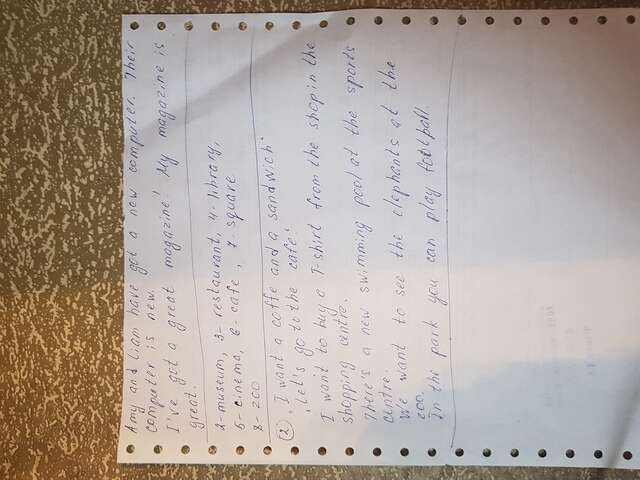 Amy and Liam have got a new computer. Their
computer is new.
I've got a great magazine! My magazine is
great.
2- museum, 3- restaurant, 4- library,
5- cinema, 6- cafe, 7- square
8- zoo
2 . I want a coffe and a sandwich.
. Let's go to the cafe!
I want to buy a T-shirt from the shop in the
shopping centre.
There's a new swimming pool at the sports
centre.
We want to see the elephants at the
zoo.
In the park you can play football.